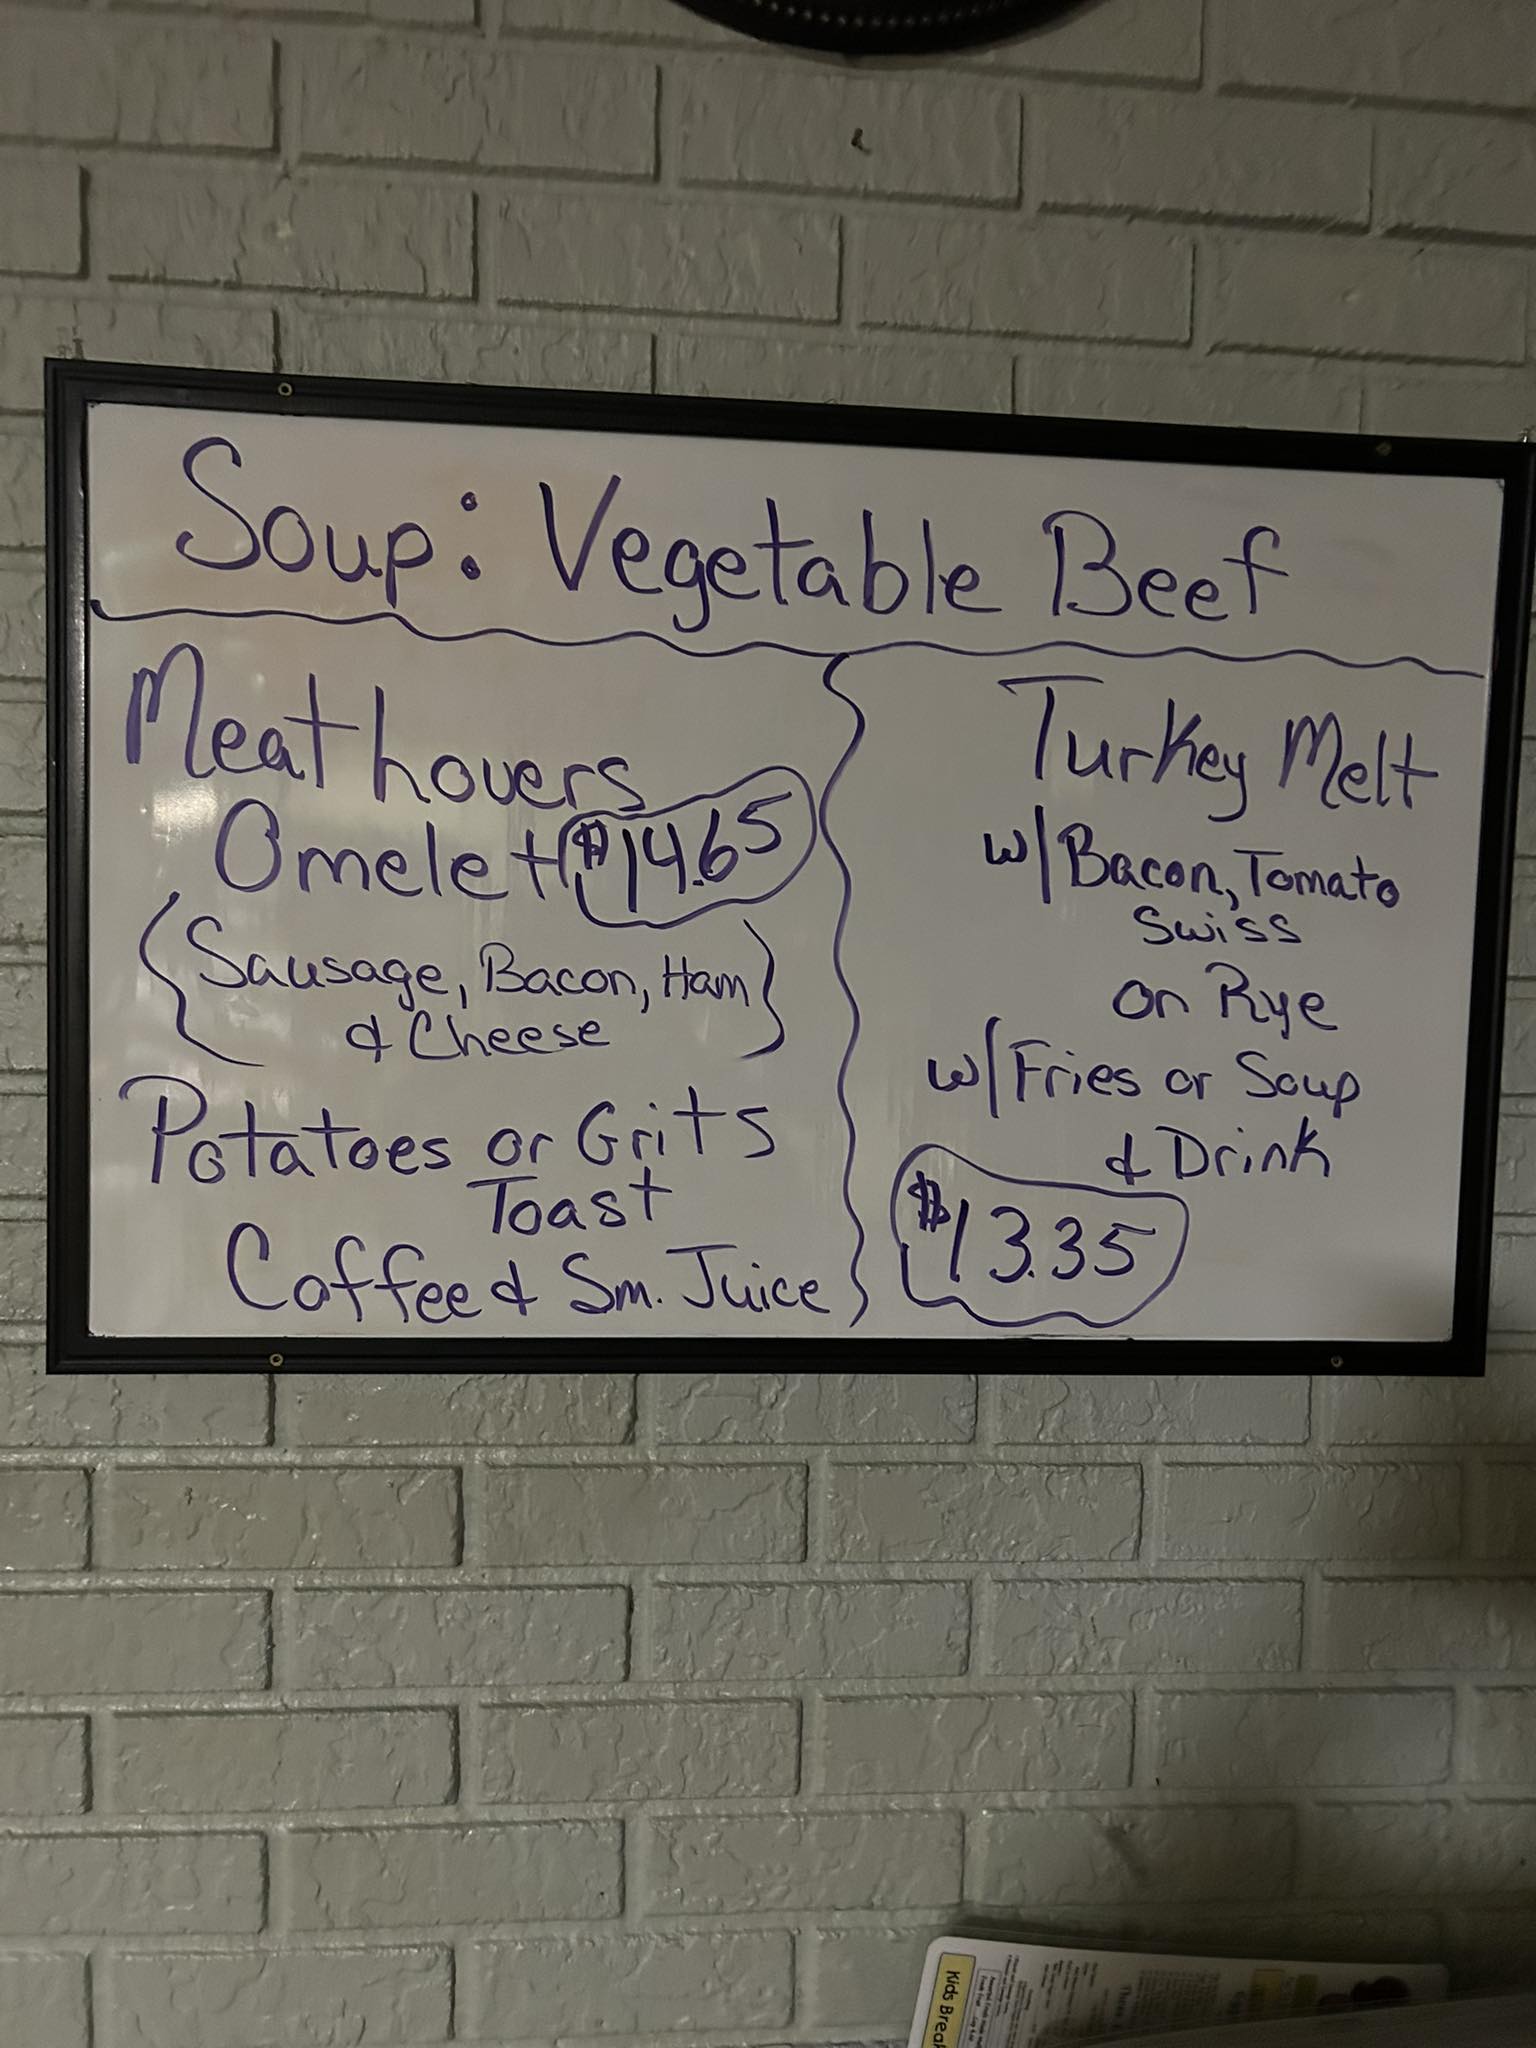 Soup: Vegetable Beef
Meat Lovers
Omelet $14.65
Sausage, Bacon, Ham
& Cheese
Potatoes or Grits
Toast
Coffee & Sm. Juice
Turkey Melt
w/Bacon, Tomato
Swiss
on Rye
w/Fries or Soup
& Drink
$13.35